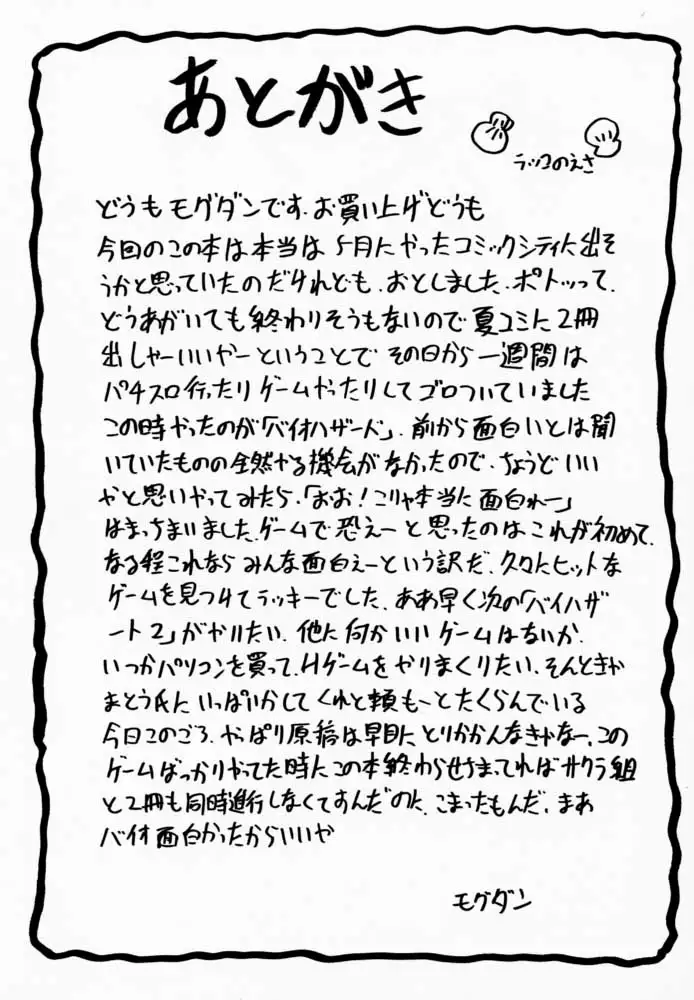 あとがき
ラッコのえさ
どうもモグダンです.お買い上げどうも
今回のこの本は本当は5月にやったコミックシティに出そ
うかと思っていたのだけれども.おとしました.ポトッって.
どうあがいても終わりそうもないので夏コミに2冊
出しゃーいいやーということでその日から一週間は
パチスロ行ったりゲームやったりしてゴロついていました
この時やったのが「バイオハザード」.前から面白いとは聞
いていたものの全然やる機会がなかったので.ちょうどいい
やと思いやってみたら.「おお!こりゃ本当に面白れー」
はまっちまいました.ゲームで恐えーと思ったのはこれが初めて.
なる程これならみんな面白えーという訳だ.久々にヒットな
ゲームを見つけてラッキーでした.ああ早く次の「バイハザ
ート2」がやりたい.他に何かいいゲームはないか.
いつかパソコンを買って.Hゲームをやりまくりたい.そんときゃ
まとう氏にいっぱいかしてくれと頼もーとたくらんでいる
今日このごろ.やっぱり原稿は早目にとりかかんなきゃなー.この
ゲームばっかりやってた時にこの本終わらせちまってればサクラ組
と2冊も同時進行しなくてすんだのに.こまったもんだ.まあ
バイオ面白かったからいいや
モグダン